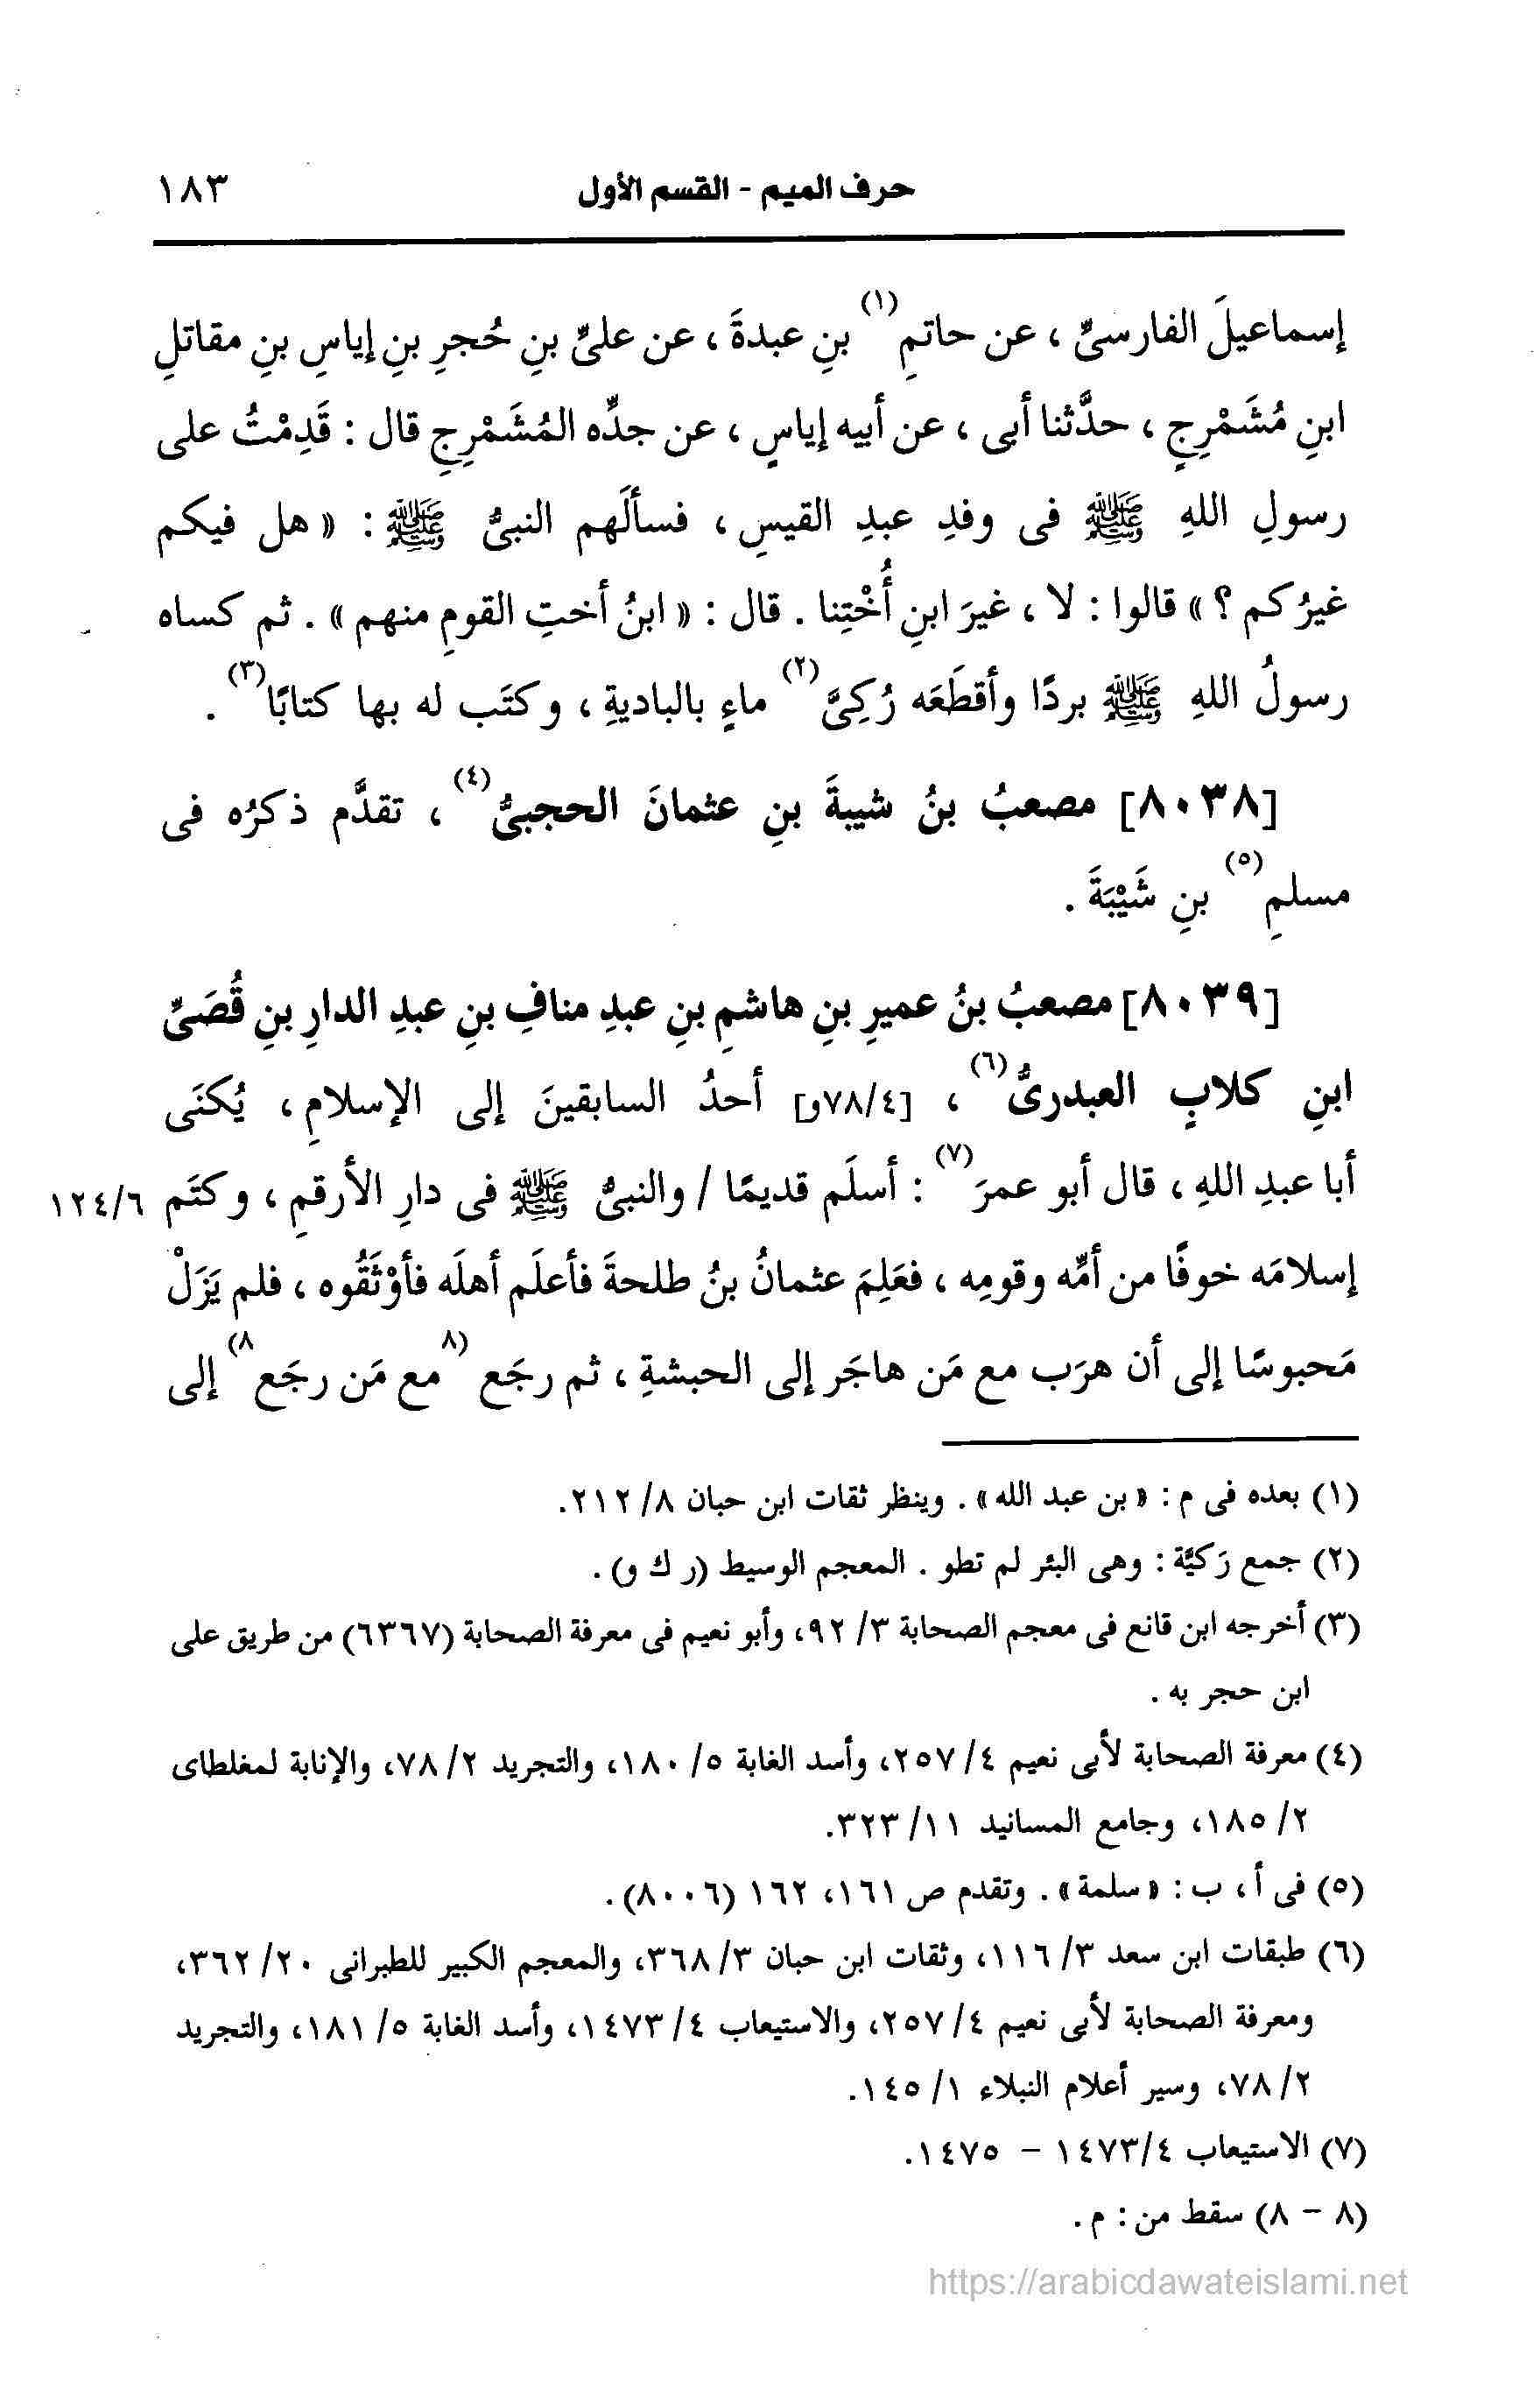 حرف الميم - القسم الأول ١٨٣
إسماعيلَ الفارسىِّ ، عن حاتمِ(١) بنِ عبدةَ ، عن علىِّ بنِ حُجرِ بنِ إياسِ بنِ مقاتلِ
ابنِ مُشَمْرِجٍ ، حدَّثنا أبى ، عن أبيه إياسٍ ، عن جدِّه المُشَمْرِجِ قال : قَدِمْتُ على
رسولِ اللهِ ﷺ فى وفدِ عبدِ القيسِ ، فسألَهم النبىُّ ﷺ : « هل فيكم
غيرُكم ؟ » قالوا : لا ، غيرَ ابنِ أُخْتِنا . قال : « ابنُ أختِ القومِ منهم » . ثم كساه
رسولُ اللهِ ﷺ بردًا وأقطَعَه رُكِىَّ(٢) ماءٍ بالباديةِ ، وكتَب له بها كتابًا(٣) .
[٨٠٣٨] مصعبُ بنُ شيبةَ بنِ عثمانَ الحجبىُّ(٤) ، تقدَّم ذكرُه فى
مسلمِ(٥) بنِ شَيْبَةَ .
[٨٠٣٩] مصعبُ بنُ عميرِ بنِ هاشمِ بنِ عبدِ منافِ بنِ عبدِ الدارِ بنِ قُصَىِّ
ابنِ كلابٍ العبدرىُّ(٦) ، [٧٨/٤و] أحدُ السابقينَ إلى الإسلامِ ، يُكنَى
أبا عبدِ اللهِ ، قال أبو عمرَ(٧) : أسلَم قديمًا / والنبىُّ ﷺ فى دارِ الأرقمِ ، وكتَم ١٢٤/٦
إسلامَه خوفًا من أمِّه وقومِه ، فعَلِمَ عثمانُ بنُ طلحةَ فأعلَم أهلَه فأوْثَقُوه ، فلم يَزَلْ
مَحبوسًا إلى أن هرَب مع مَن هاجَر إلى الحبشةِ ، ثم رجَع (٨مع مَن رجَع٨) إلى
(١) بعده فى م : « بن عبد الله » . وينظر ثقات ابن حبان ٨/ ٢١٢.
(٢) جمع رَكيَّة : وهى البئر لم تطو . المعجم الوسيط (ر ك و) .
(٣) أخرجه ابن قانع فى معجم الصحابة ٣/ ٩٢، وأبو نعيم فى معرفة الصحابة (٦٣٦٧) من طريق على
ابن حجر به .
(٤) معرفة الصحابة لأبى نعيم ٤/ ٢٥٧، وأسد الغابة ٥/ ١٨٠، والتجريد ٢/ ٧٨، والإنابة لمغلطاى
٢/ ١٨٥، وجامع المسانيد ١١/ ٣٢٣.
(٥) فى أ ، ب : « سلمة » . وتقدم ص ١٦١، ١٦٢ (٨٠٠٦) .
(٦) طبقات ابن سعد ٣/ ١١٦، وثقات ابن حبان ٣/ ٣٦٨، والمعجم الكبير للطبرانى ٢٠/ ٣٦٢،
ومعرفة الصحابة لأبى نعيم ٤/ ٢٥٧، والاستيعاب ٤/ ١٤٧٣، وأسد الغابة ٥/ ١٨١، والتجريد
٢/ ٧٨، وسير أعلام النبلاء ١/ ١٤٥.
(٧) الاستيعاب ٤/ ١٤٧٣ - ١٤٧٥.
(٨ - ٨) سقط من : م .
https://arabicdawateislami.net